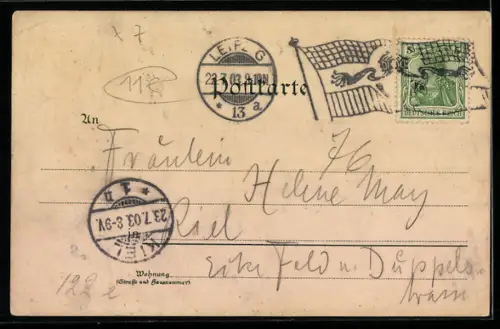 x 7
11
LEIPZIG
22.7.03.8-10N.
* 13 a.
5
DEUTSCHES REICH
Postkarte
An
Fräulein
Helene May
Kiel
KIEL
23.7.03.8-9V.
* 1 n
Ecke Feld u. Düppel
Wohnung
(Straße und Hausnummer)
122 e